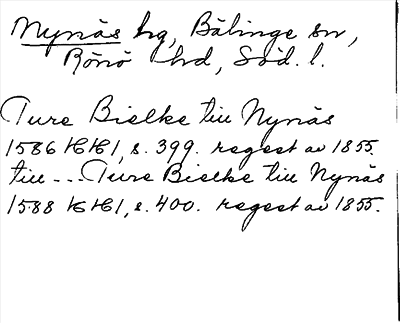 Nynäs hg, Bälinge sn,
Rönö hd, Söd. l.
Ture Bielke till Nynäs
1586 KHH1, s. 399. regest av 1855.
till --- Ture Bielke till Nynäs
1588 KHH1, s. 400. regest av 1855.